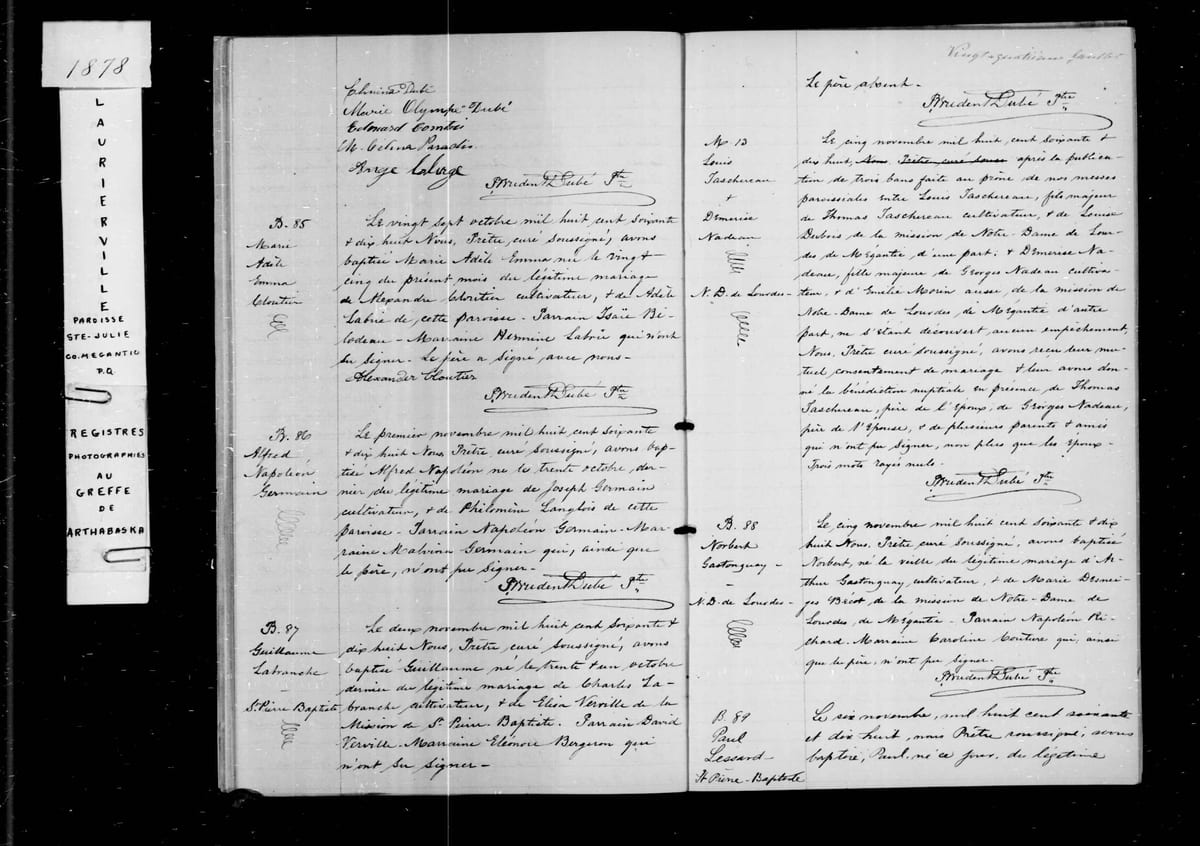 1878
LAURIERVILLE
PAROISSE
STE-JULIE
CO. MEGANTIC
P.Q.
REGISTRES
PHOTOGRAPHIÉS
AU
GREFFE
DE
ARTHABASKA
Elmina Dubé
Marie Olympe Dubé
Edouard Comtois
M. Celina Paradis
Ange Laberge
P. Prudent Dubé Ptre
B. 85
Marie
Adèle
Emma
Cloutier
Le vingt sept octobre mil huit cent soixante
& dix huit Nous, Prêtre curé soussigné, avons
baptisé Marie Adèle Emma née le vingt
cinq du présent mois du légitime mariage
de Alexandre Cloutier cultivateur, & de Adèle
Labrie de cette paroisse. Parrain Isaïe Bi-
lodeau - Marraine Hermine Labrie qui n'ont
su signer. Le père a signé avec nous-
Alexander Cloutier
P. Prudent Dubé Ptre
B. 86
Alfred
Napoléon
Germain
Le premier novembre mil huit cent soixante
& dix huit Nous, Prêtre, curé soussigné, avons bap-
tisé Alfred Napoléon né le trente octobre der-
nier du légitime mariage de Joseph Germain
cultivateur, & de Philomène Langlois de cette
paroisse - Parrain Napoléon Germain - Mar-
raine Malvina Germain qui, ainsi que
le père, n'ont pu signer -
P. Prudent Dubé Ptre
B. 87
Guillaume
Labranche
-
St. Pierre Baptiste
Le deux novembre mil huit cent soixante &
dix huit Nous, Prêtre curé soussigné, avons
baptisé Guillaume né le trente & un octobre
dernier du légitime mariage de Charles La-
branche, cultivateur, & de Elisa Verville de la
Mission de St. Pierre Baptiste. Parrain David
Verville - Marraine Eléonore Bergeron qui
n'ont su signer -
Vingt-quatrième feuillet
Le père absent -
P. Prudent Dubé Ptre
M. 13
Louis
Taschereau
+
Démerise
Nadeau
N. D. de Lourdes -
Le cinq novembre mil huit cent soixante &
dix huit, Nous, Prêtre curé souss après la publica-
tion de trois bans faite au prône de nos messes
paroissiales entre Louis Taschereau, fils majeur
de Thomas Taschereau cultivateur, & de Louise
Dubois de la mission de Notre-Dame de Lour-
des de Mégantic d'une part: & Démerise Na-
deau, fille majeure de Georges Nadeau cultiva-
teur, & d'Emélie Morin aussi, de la mission de
Notre-Dame de Lourdes de Mégantic d'autre
part, ne s'étant découvert, aucun empêchement,
Nous, Prêtre curé soussigné, avons reçu leur mu-
tuel consentement de mariage & leur avons don-
né la bénédiction nuptiale en présence de Thomas
Taschereau, père de l'époux, de Georges Nadeau,
père de l'épouse, & de plusieurs parents & amis
qui n'ont pu signer, non plus que les époux.
Trois mots rayés nuls.
P. Prudent Dubé Ptre
B. 88
Norbert
Gastonguay -
-
N. D. de Lourdes -
Le cinq novembre mil huit cent soixante & dix
huit Nous, Prêtre curé soussigné, avons baptisé
Norbert, né la veille du légitime mariage d'Ar-
thur Gastonguay, cultivateur, & de Marie Desnei-
ges Bécot de la mission de Notre-Dame de
Lourdes de Mégantic - Parrain Napoléon Ri-
chard. Marraine Caroline Couture qui, ainsi
que le père, n'ont pu signer.
P. Prudent Dubé Ptre
B. 89
Paul
Lessard
St Pierre-Baptiste
Le six novembre, mil huit cent soixante
et dix huit, nous Prêtre soussigné, avons
baptisé, Paul, né ce jour, du légitime